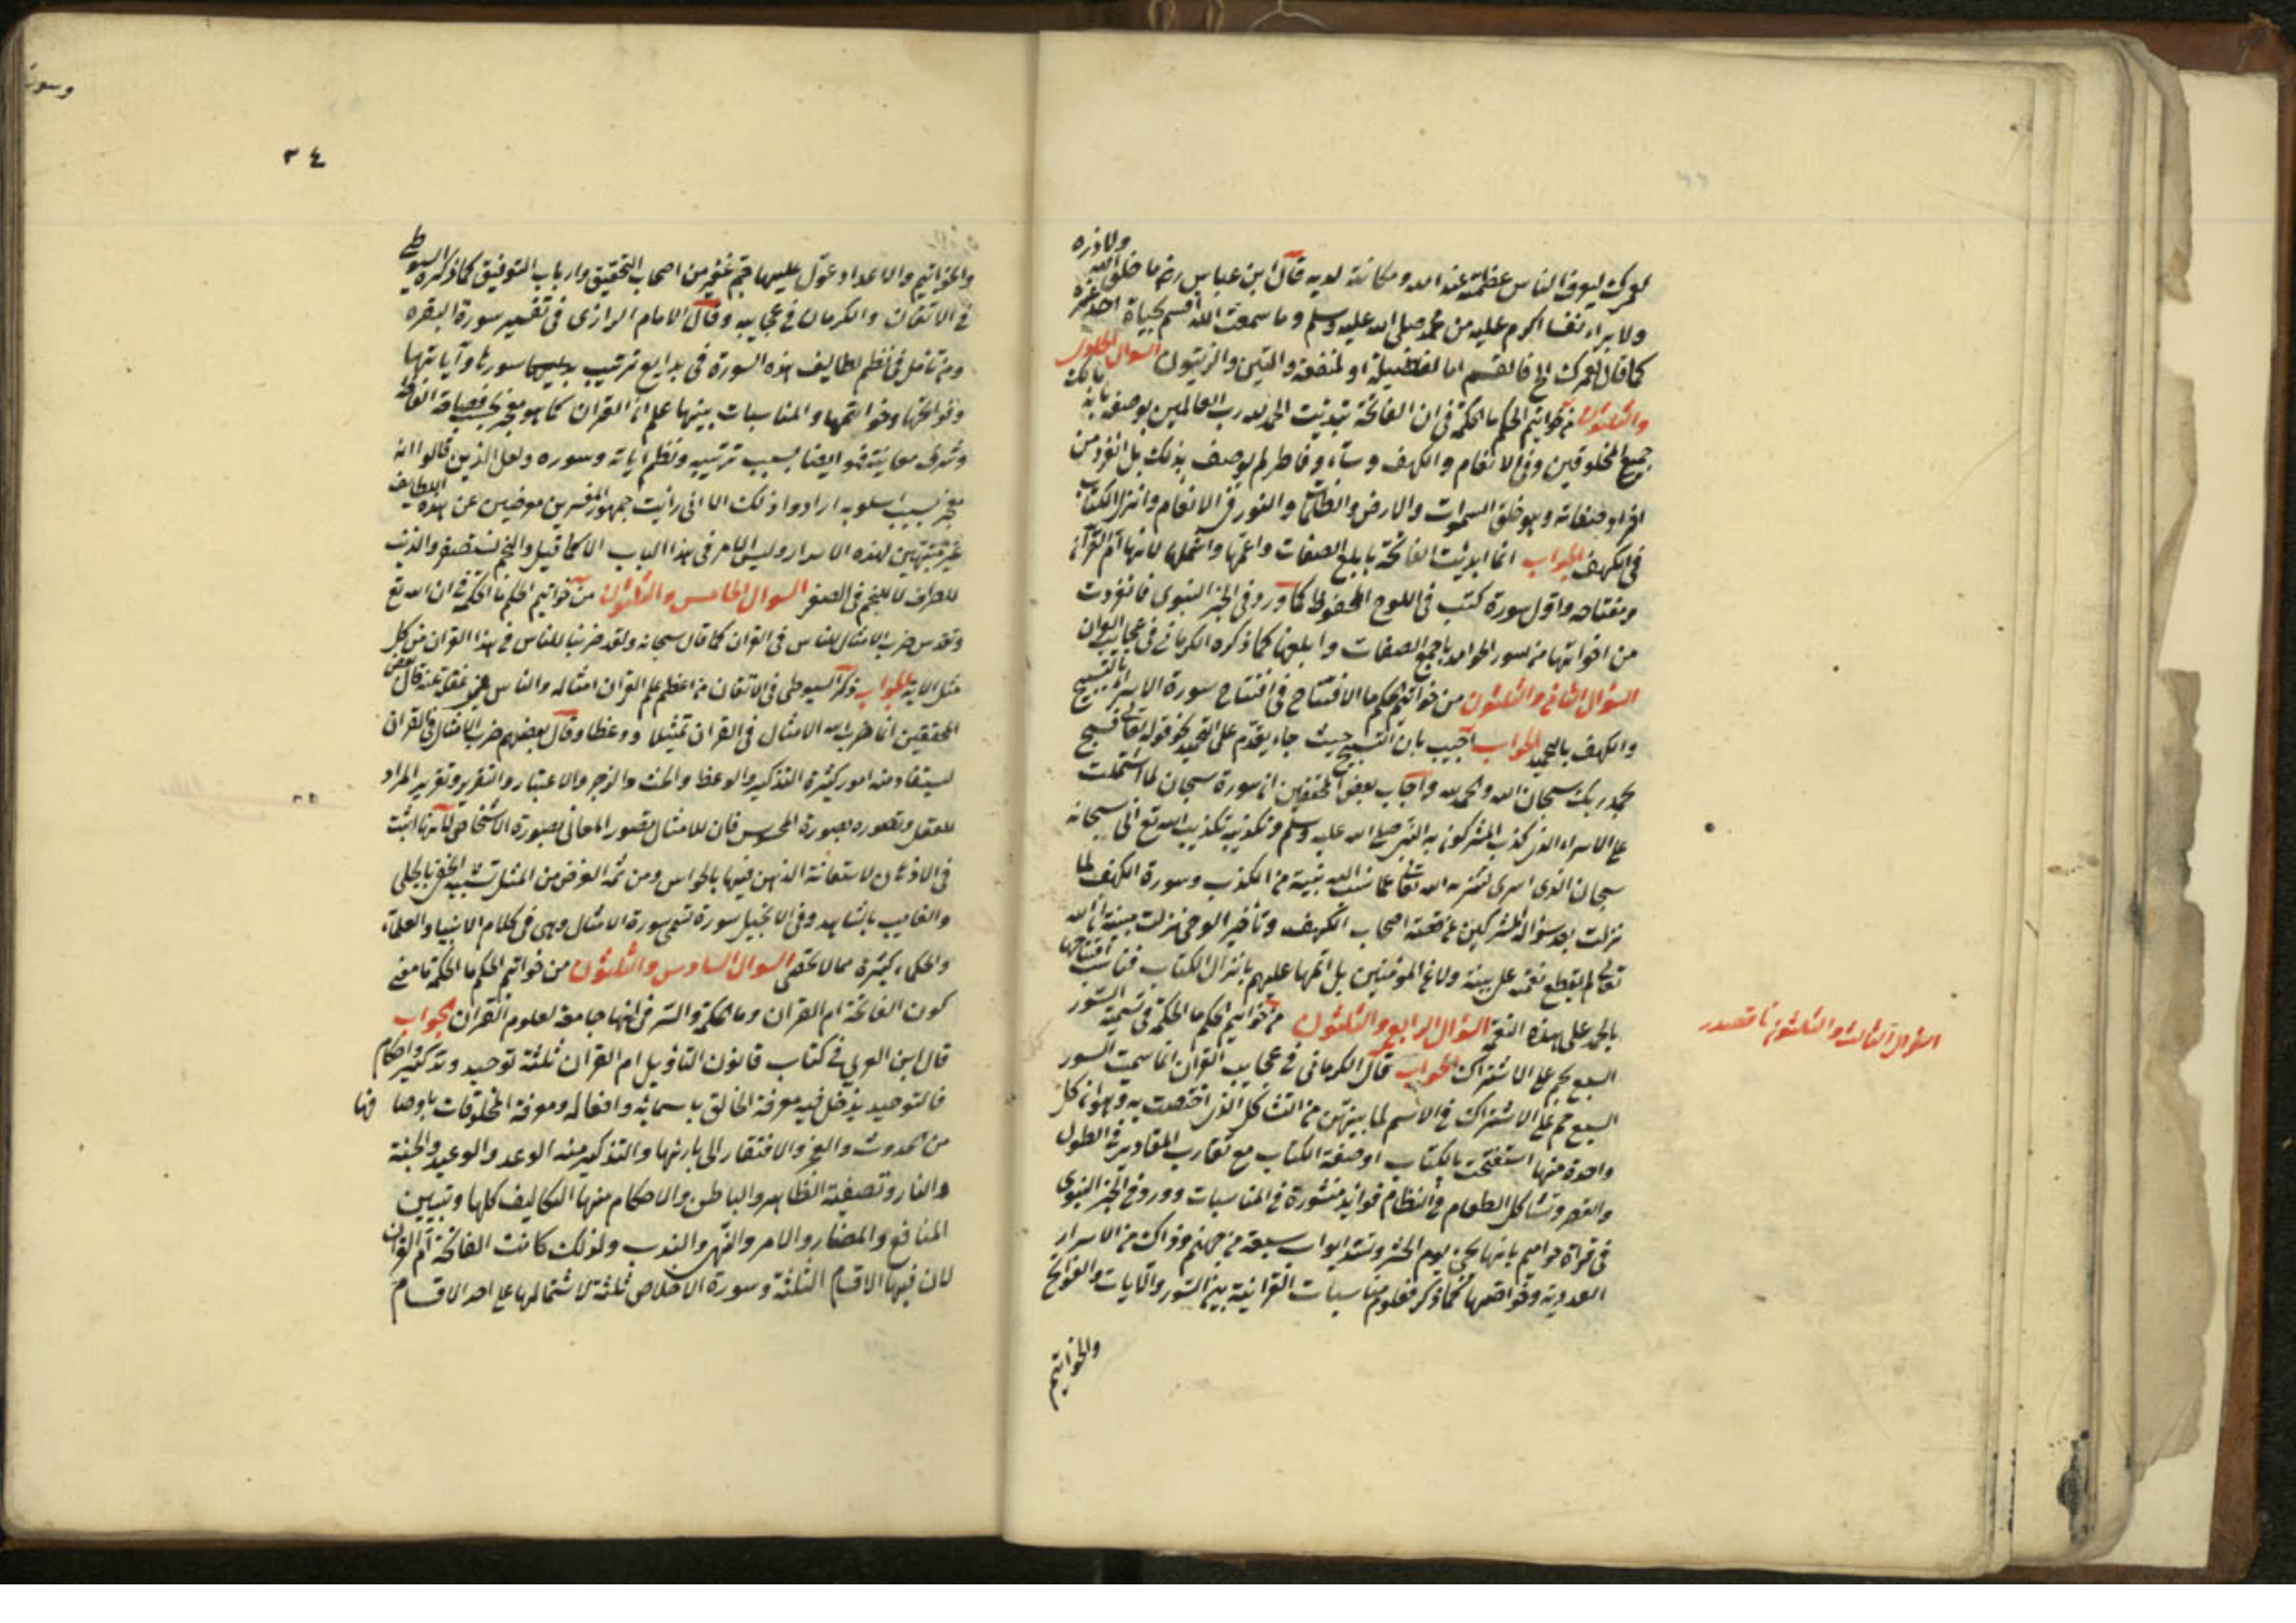 لعمرك ليعرف الناس عظمته عند الله ومكانته لديه قال ابن عباس رضـ ما خلق الله ولا ذرء
ولا براء نفسا اكرم عليه من محمد صلى الله عليه وسلم وما سمعت الله اقسم بحياة احد غيره
كما قال لعمرك الخ فالقسم اما لفضيلة او لمنفعة والتين والزيتون السؤال الحادى
والثلثون من خواتيم الحكم ما الحكمة فى ان الفاتحة تبدئت الحمد لله رب العالمين بوصفه بانه مالك
جميع المخلوقين وفى الانعام والكهف وسبأ وفاطر لم يوصف بذلك بل انفرد من
افراد صفاته وهو خلق السموات والارض والظلمات والنور فى الانعام وانزل الكتاب
فى الكهف الجواب انما ابدئت الفاتحة بابلغ الصفات واعمها واشملها لانها ام القرآن
ومفتاحه واول سورة كتب فى اللوح المحفوظ كما ورد فى الخبر النبوى فانفردت
من اخواتها من سور الحوامد باجمع الصفات وابلغها كما ذكره الكرمانى فى عجايب القران
السؤال الثانى والثلثون من خواتيم الحكم ما الافتتاح فى افتتاح سورة الاسرا بالتسبيح
والكهف بالتحميد الجواب اجيب بان التسبيح حيث جاء يقدم على التحميد نحو قوله تعالى فسبح
بحمد ربك سبحان الله والحمد لله واجاب بعض المحققين ان سورة سبحان لما اشتملت
على الاسراء الذى كذب المشركون به النبى صلى الله عليه وسلم وتكذيبه تكذيب الله تع اتى بسبحانه
سبحان الذى اسرى لتنزيه الله تعالى عما نسب اليه نبيه من الكذب وسورة الكهف لما
نزلت بعد سؤال المشركين عن قصة اصحاب الكهف وتأخير الوحى نزلت مبينة ان الله
تعالى لم يقطع نعمته عن نبيه ولا عن المؤمنين بل اتمها عليهم بانزال الكتاب فناسب افتتاحها
بالحمد على هذه النعمة السؤال الرابع والثلثون من خواتيم الحكم ما الحكمة فى تسمية السور
السبع بحم على الاشتراك الجواب قال الكرمانى فى عجايب القران انما سميت السور
السبع حم على الاشتراك فى الاسم لما بينهن من التشاكل الذى اختصت به وهو ان كل
واحدة منها استفتحت بالكتاب او صفة الكتاب مع تقارب المقادير فى الطول
والقصر وتشاكل الطعام فى النظام فوايد منشورة فى المناسبات وورد فى الخبر النبوى
فى قراة حواميم بانها تجئ يوم الحشر وتسد ابواب سبعة من جهنم وذاك من الاسرار
العددية وخواصها كما ذكر فعلوم مناسبات القرانية بين السور والآيات والفواتح
والخواتيم
السؤال الثالث والثلثون
٣٤
والخواتيم والاعداد عول عليها جم غفير من اصحاب التحقيق وارباب التوفيق كما ذكره السيوطى
فى الاتقان والكرمانى فى عجايبه وقال الامام الرازى فى تفسير سورة البقره
ومن تأمل فى نظم لطايف هذه السورة فى بدايع ترتيب سورها وآياتها
وفواتحها وخواتمها والمناسبات بينها علم ان القران كما هو معجز بحسب فصاحة الفاظه
وشرف معانيه فهو ايضا بسبب ترتيبه ونظم آياته وسوره ولعل الذين قالوا انه
معجز بسبب اسلوبه ارادوا ذلك الا انى رأيت جمهور المفسرين معرضين عن هذه اللطايف
غير متنبهين لهذه الاسرار وليس الامر فى هذا الباب الا كما قيل والنجم تستصغر والذنب
للطرف لا للنجم فى الصغر السؤال الخامس والثلثون من خواتيم الحكم ما الحكمة فى ان الله تع
وتقدس ضرب الامثال للناس فى القران كما قال سبحانه ولقد ضربنا للناس فى هذا القران من كل
مثل الاية الجواب ذكر السيوطى فى الاتقان من اعظم علم القران امثاله والناس فى غفلة عنه قال بعض
المحققين انما ضرب الله الامثال فى القران تمثيلا ووعظا وقال بعضهم ضرب الامثال فى القران
ليستفاد منه امور كثيرة التذكير والوعظ والحث والزجر والاعتبار والتقرير وتقريب المراد
للعقل وتصوره بصورة المحسوس فان الامثال تصور المعانى بصورة الاشخاص لانها اثبت
فى الاذهان لاستعانة الذهن فيها بالحواس ومن ثمه الغرض من المثل تشبيه الخفى بالجلى
والغايب بالشاهد وفى الانجيل سورة تسمى سورة الامثال وهى فى كلام الانبياء والعلماء
والحكماء كثيرة مما لا تحصى السؤال السادس والثلثون من خواتيم الحكم ما الحكمة ما معنى
كون الفاتحة ام القران وما الحكمة والسر فى انها جامعة لعلوم القران الجواب
قال ابن العربى فى كتاب قانون التاويل ام القران ثلثة توحيد وتذكير واحكام
فالتوحيد يدخل فيه معرفة الخالق باسمائه وافعاله ومعرفة المخلوقات باوصا فها
من حدوث والعجز والافتقار الى بارئها والتذكير منه الوعد والوعيد والجنة
والنار وتصفية الظاهر والباطن والاحكام منها التكاليف كلها وتبيين
المنافع والمضار والامر والنهى والندب ولذلك كانت الفاتحة ام القران
لان فيها الاقسام الثلثة وسورة الاخلاص ثلثه لاشتمالها على احد الاقسام